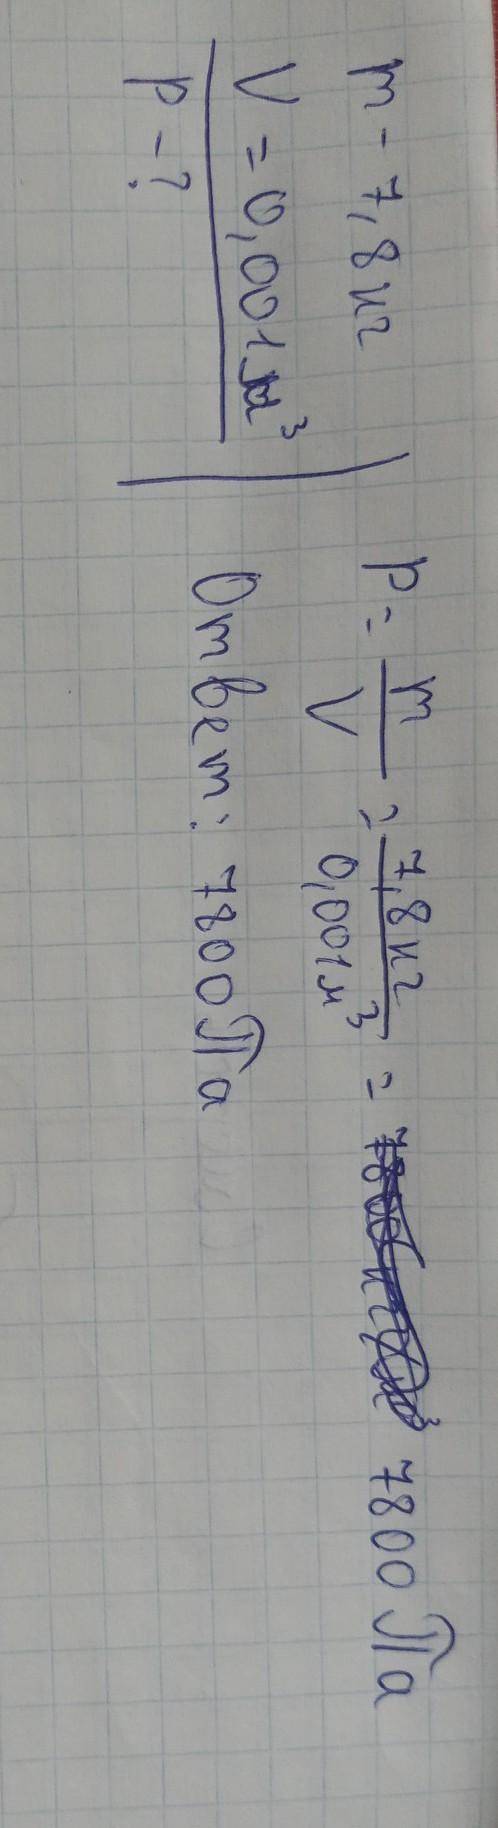 m - 7,8 кг
V = 0,001 м³
p - ?
p = m/V = 7,8 кг/0,001 м³ = 7800 Па
Ответ: 7800 Па